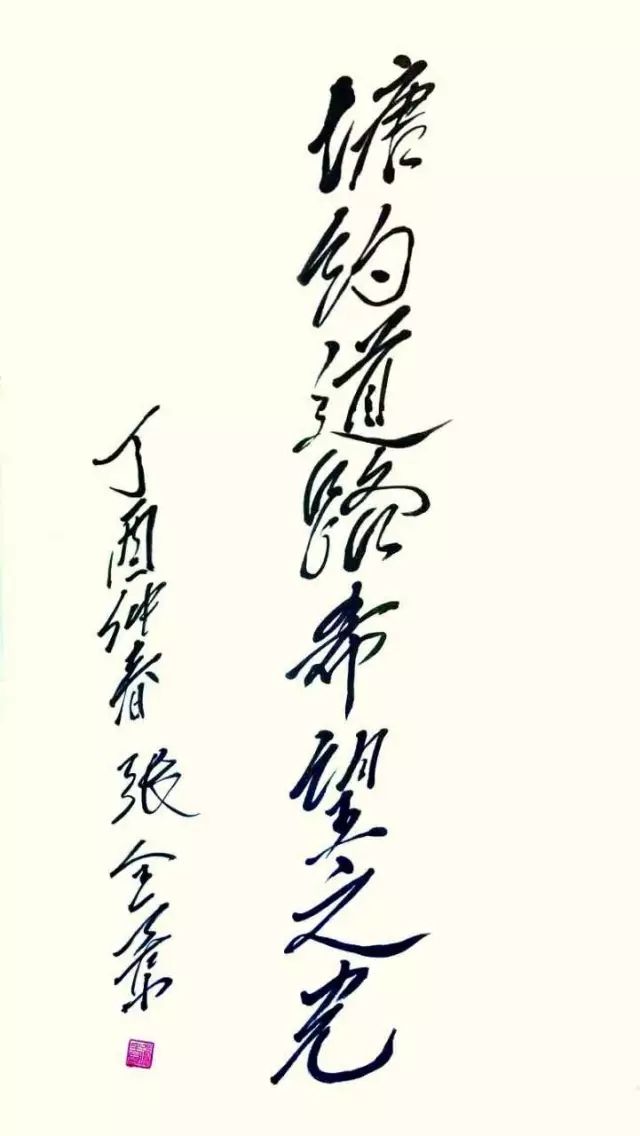 塘约道路希望之光
丁酉仲春 张全景